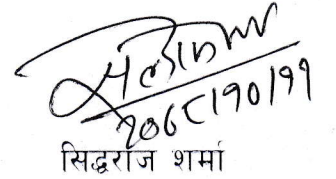 २०६८।१०।११
सिद्धराज शर्मा